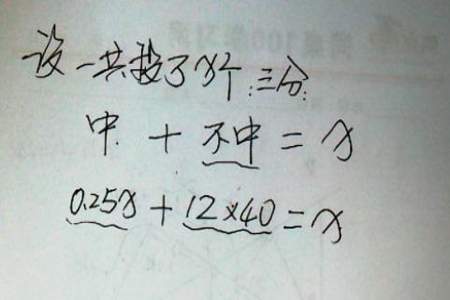 设一共投了x个三分.
中 + 不中 = x
0.25x + 12×40 = x